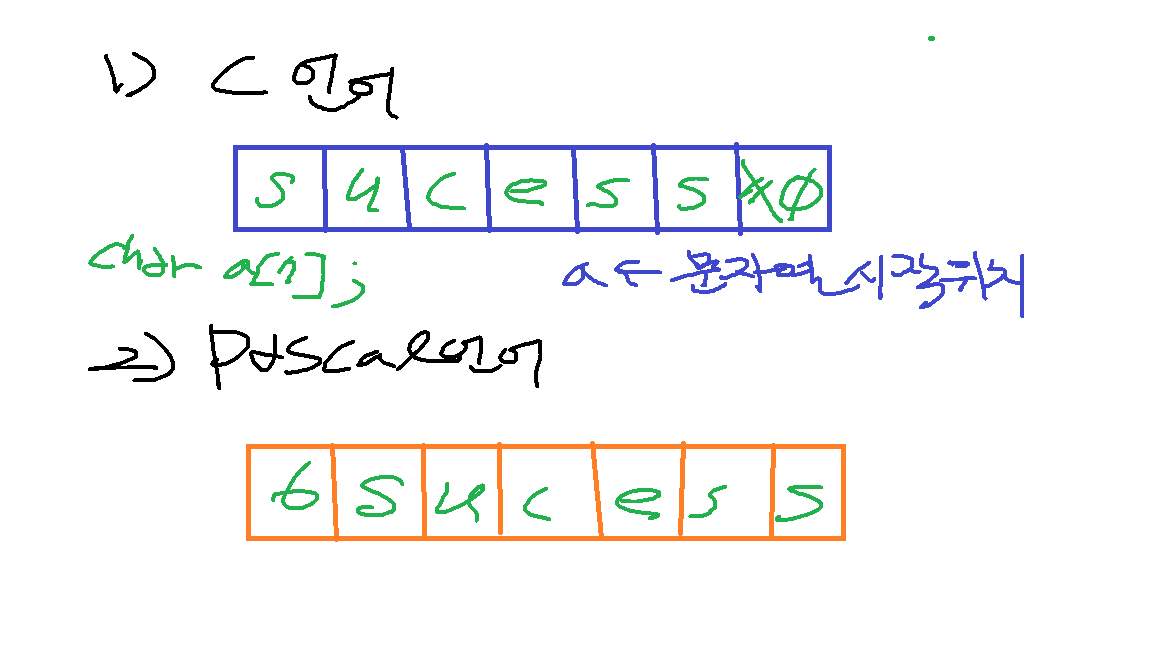 1) C 언어
s u c e s s \0
char a[7];
a ← 문자열 시작위치
2) Pascal언어
6 s u c e s s